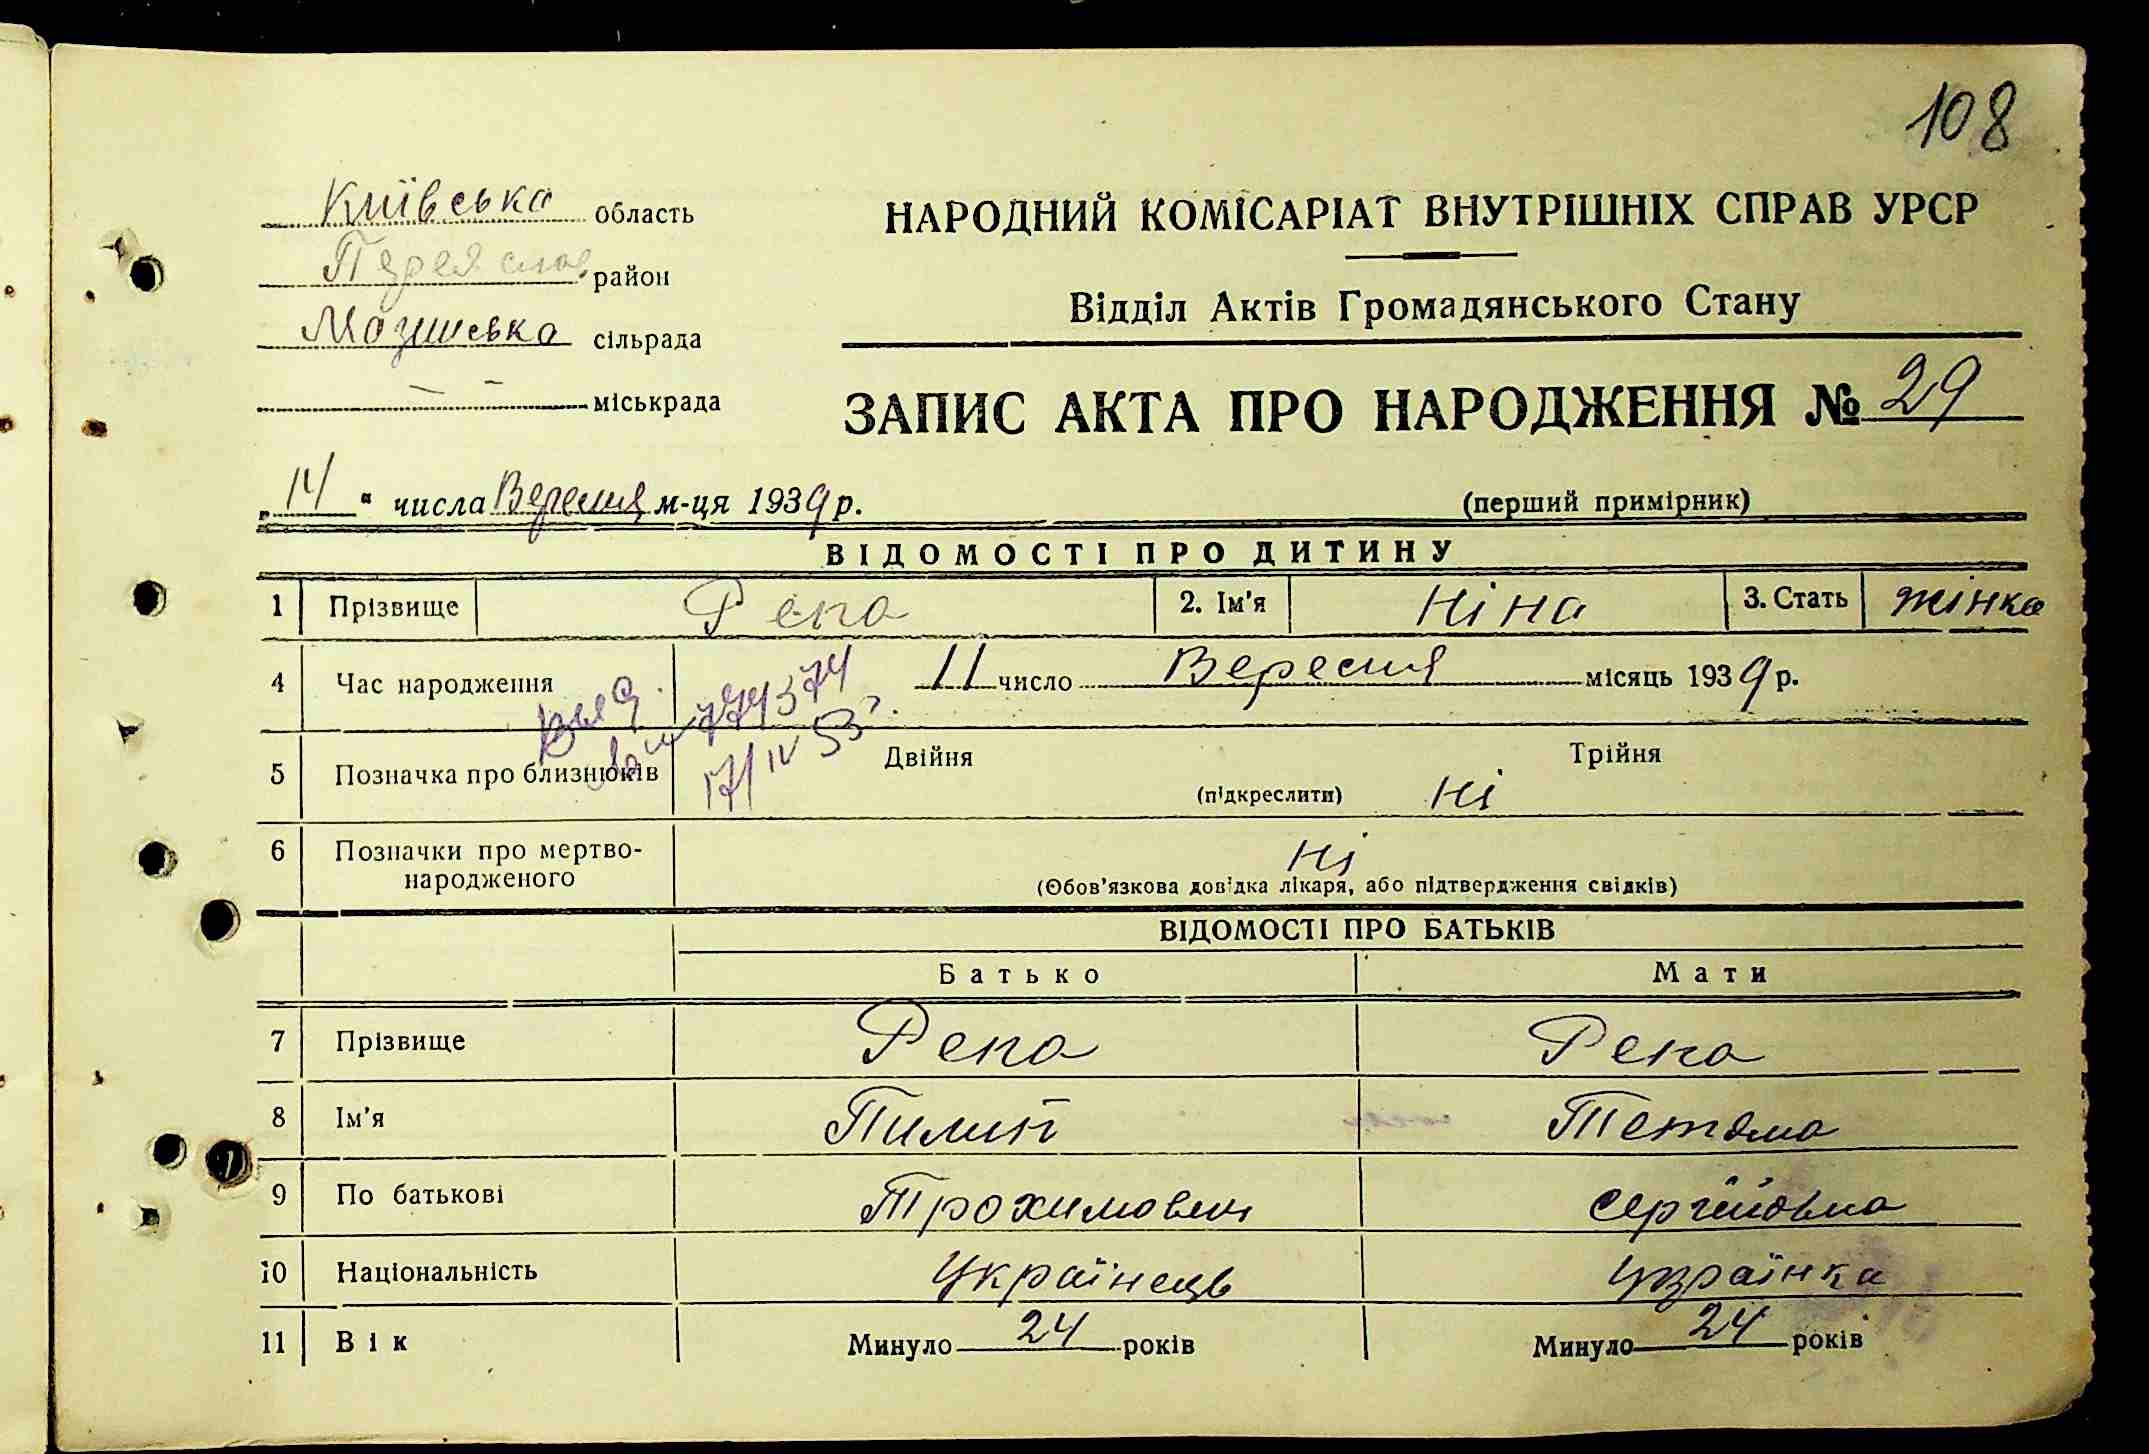 108
Київська область
НАРОДНИЙ КОМІСАРІАТ ВНУТРІШНІХ СПРАВ УРСР
Переяслав район
Відділ Актів Громадянського Стану
сільрада
міськрада
ЗАПИС АКТА ПРО НАРОДЖЕННЯ № 29
„ 14 “ числа Вересня м-ця 1939 р.
(перший примірник)
ВІДОМОСТІ ПРО ДИТИНУ
1 Прізвище Репа 2. Ім'я Ніна 3. Стать жінка
4 Час народження 11 число Вересня місяць 1939 р.
774374
17/IV 53 г.
5 Позначка про близнюків Двійня Трійня
(підкреслити) Ні
6 Позначки про мертво-
народженого
Ні
(Обов'язкова довідка лікаря, або підтвердження свідків)
ВІДОМОСТІ ПРО БАТЬКІВ
Батько Мати
7 Прізвище Репа Репа
8 Ім'я Пилип Тетяна
9 По батькові Трохимович Сергіївна
10 Національність Українець Українка
11 Вік Минуло 24 років Минуло 24 років